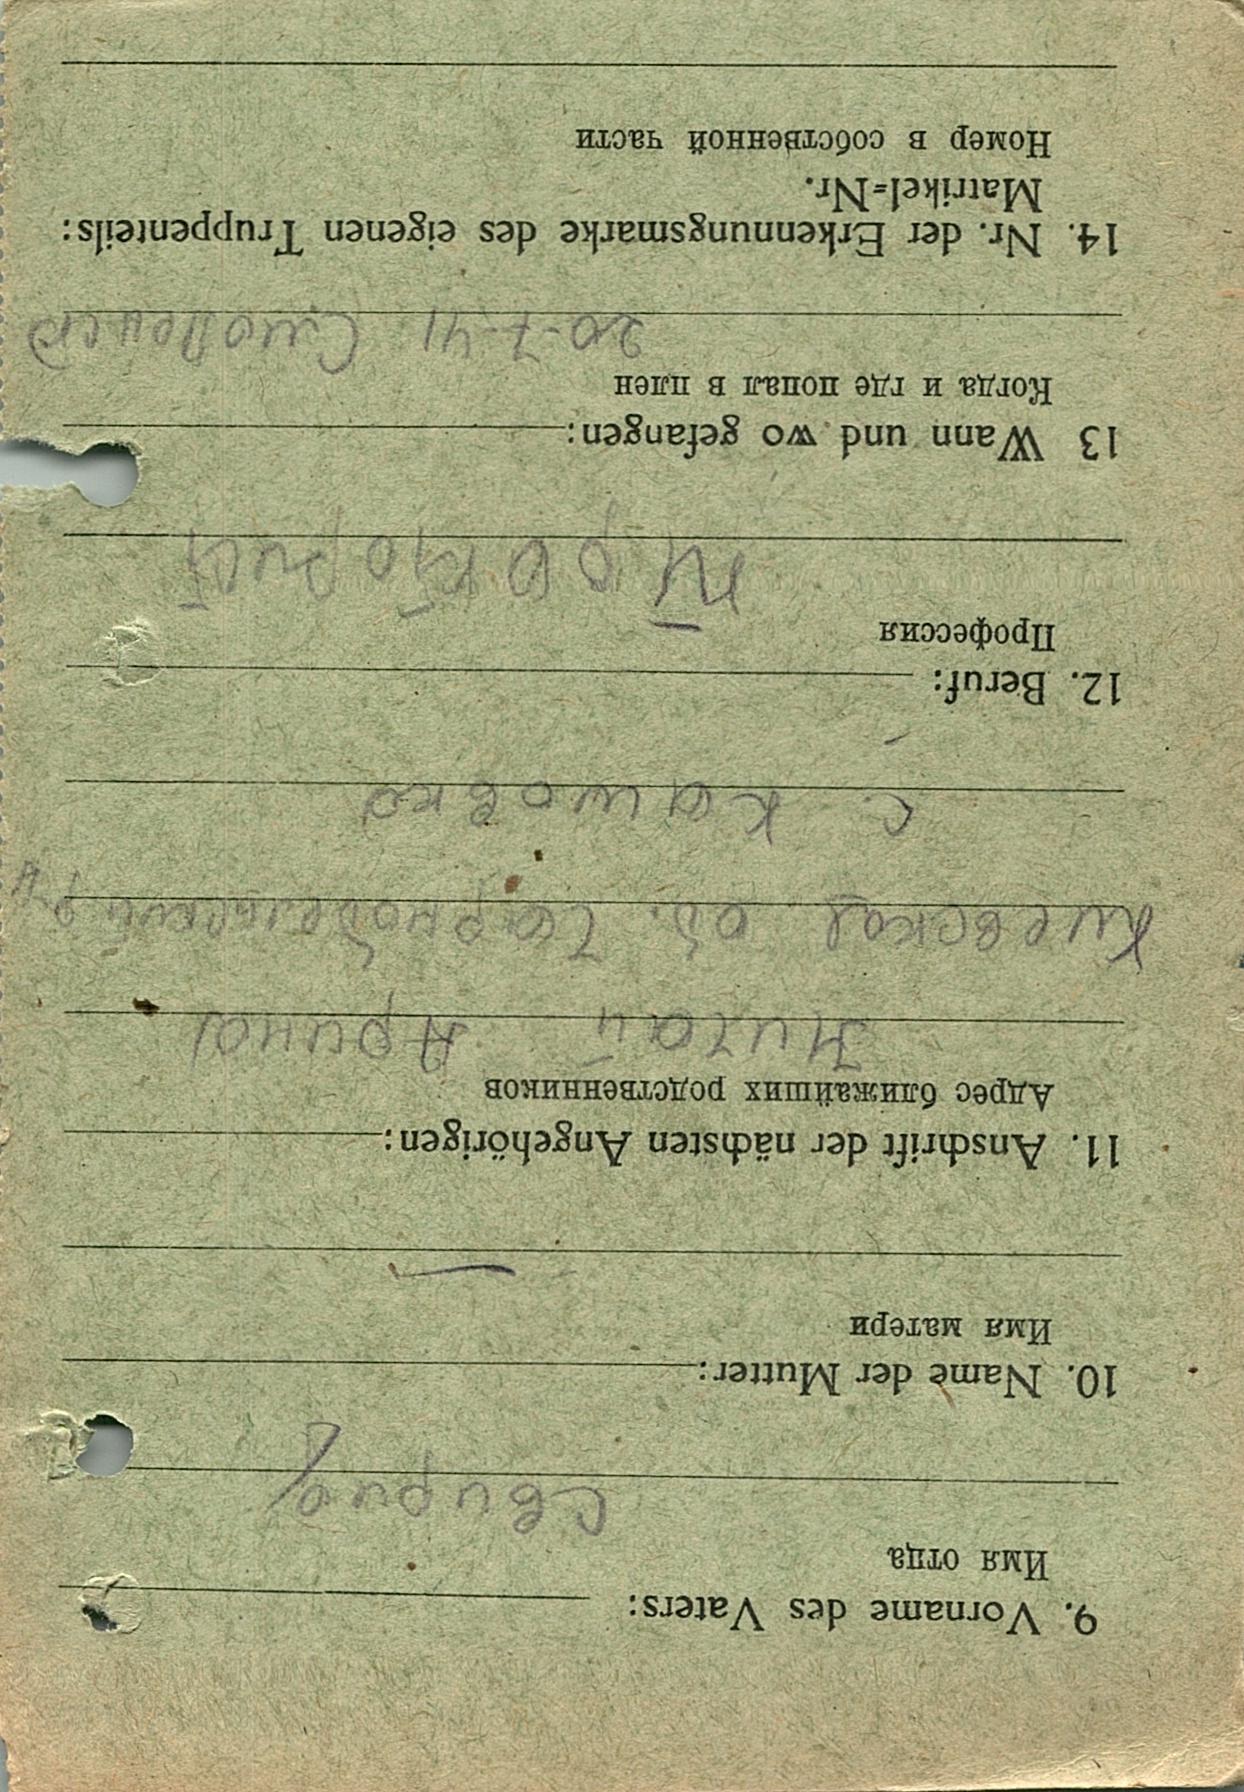 9. Vorname des Vaters:
Имя отца
Свирид
10. Name der Mutter:
Имя матери
—
11. Anschrift der nächsten Angehörigen:
Адрес ближайших родственников
Арина
Киевская об. р-н
с. Кашовка
12. Beruf:
Профессия
Тракторист
13 Wann und wo gefangen:
Когда и где попал в плен
20-7-41 Смоленск
14. Nr. der Erkennungsmarke des eigenen Truppenteils:
Matrikel=Nr.
Номер в собственной части